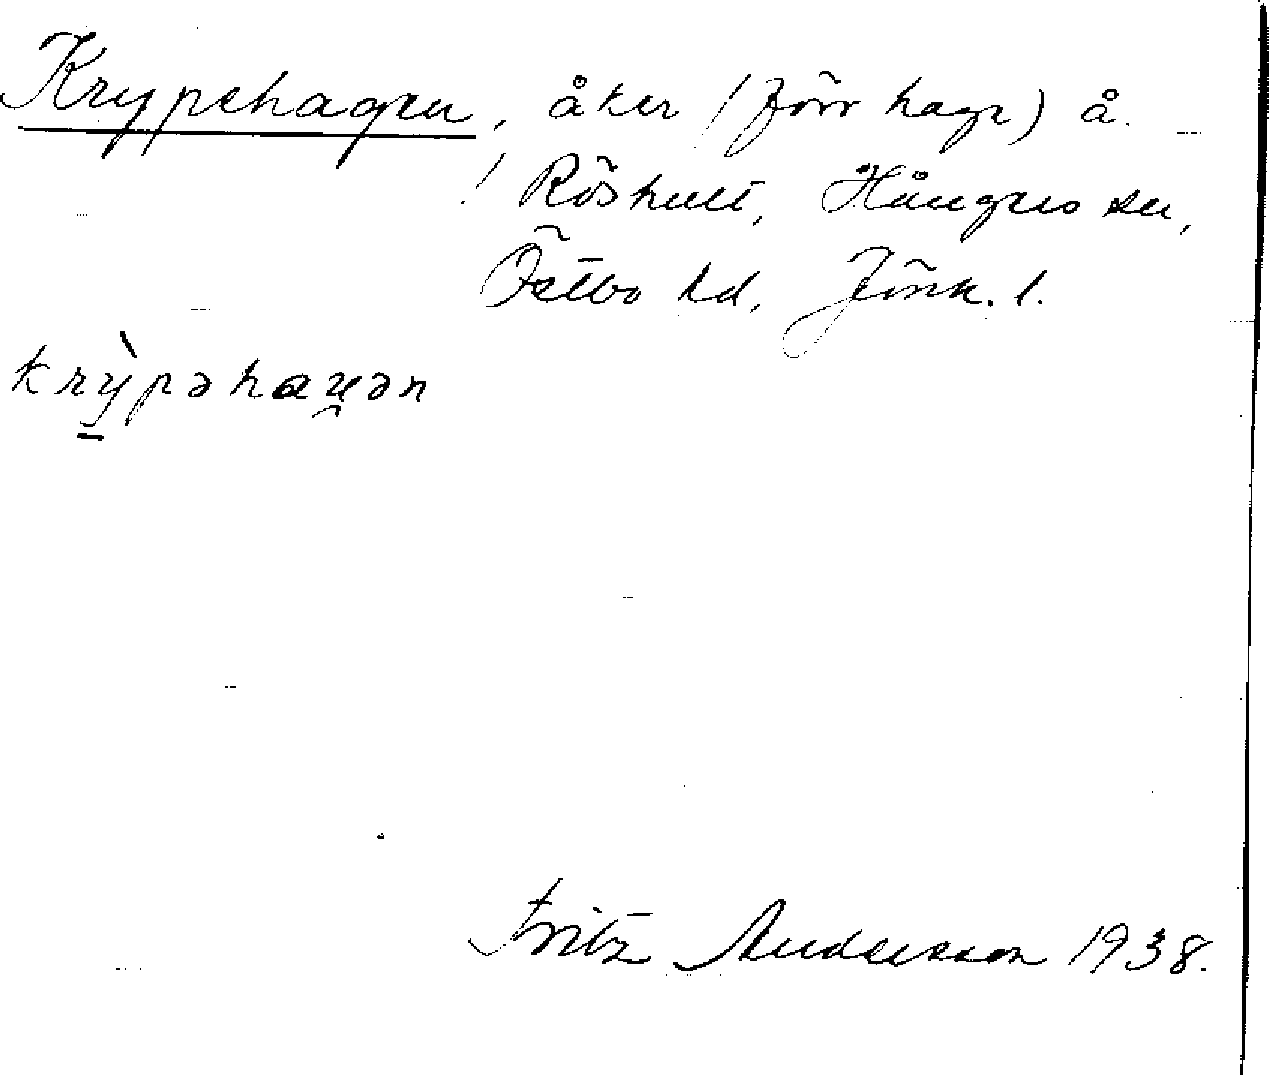 Krypehagen, åker (förr hage) å.
! Röshult, Hånger sn,
Östbo hd, Jönk. l.
krỳpəhau̯ən
Fritz Andersson 1938.